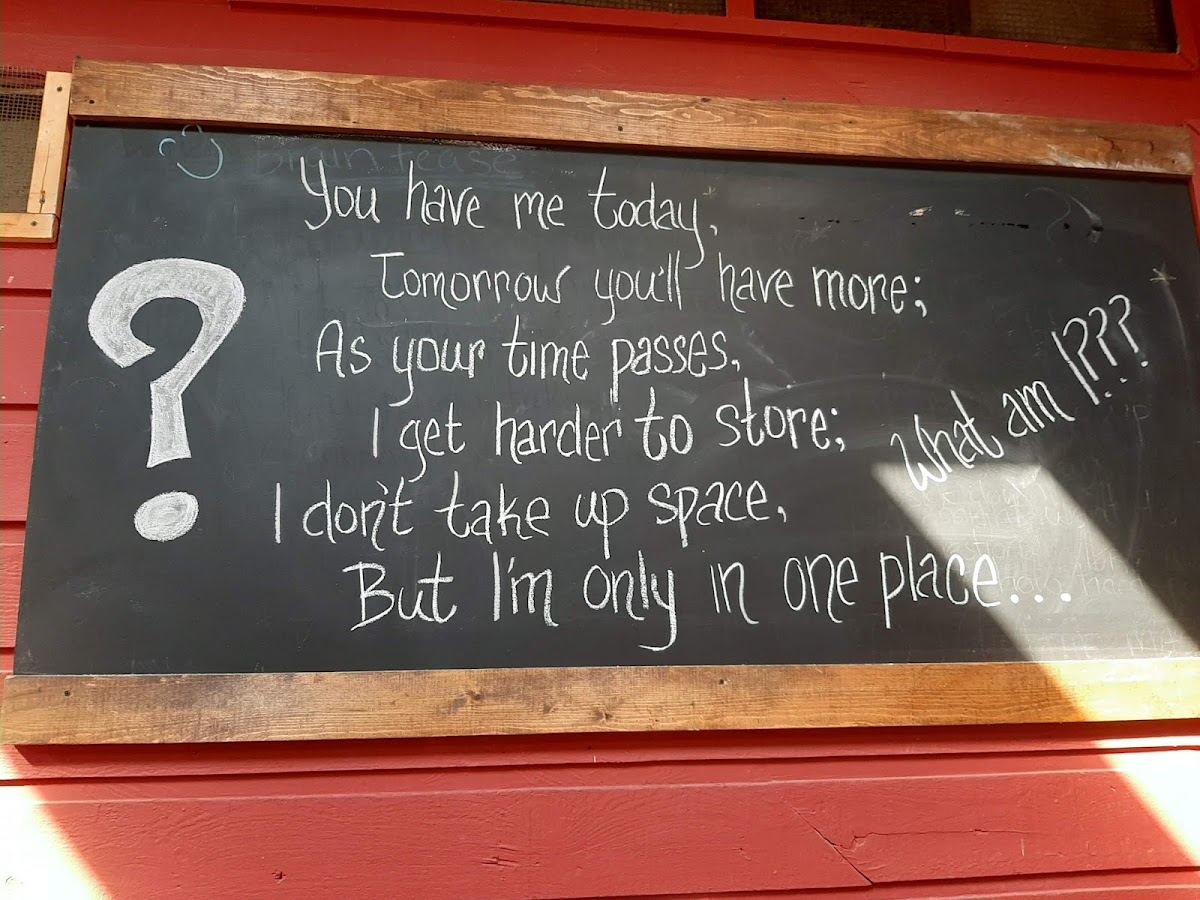 Brain tease
You have me today,
Tomorrow you'll have more;
As your time passes,
I get harder to store;
I don't take up space,
But I'm only in one place...
What am I???
?